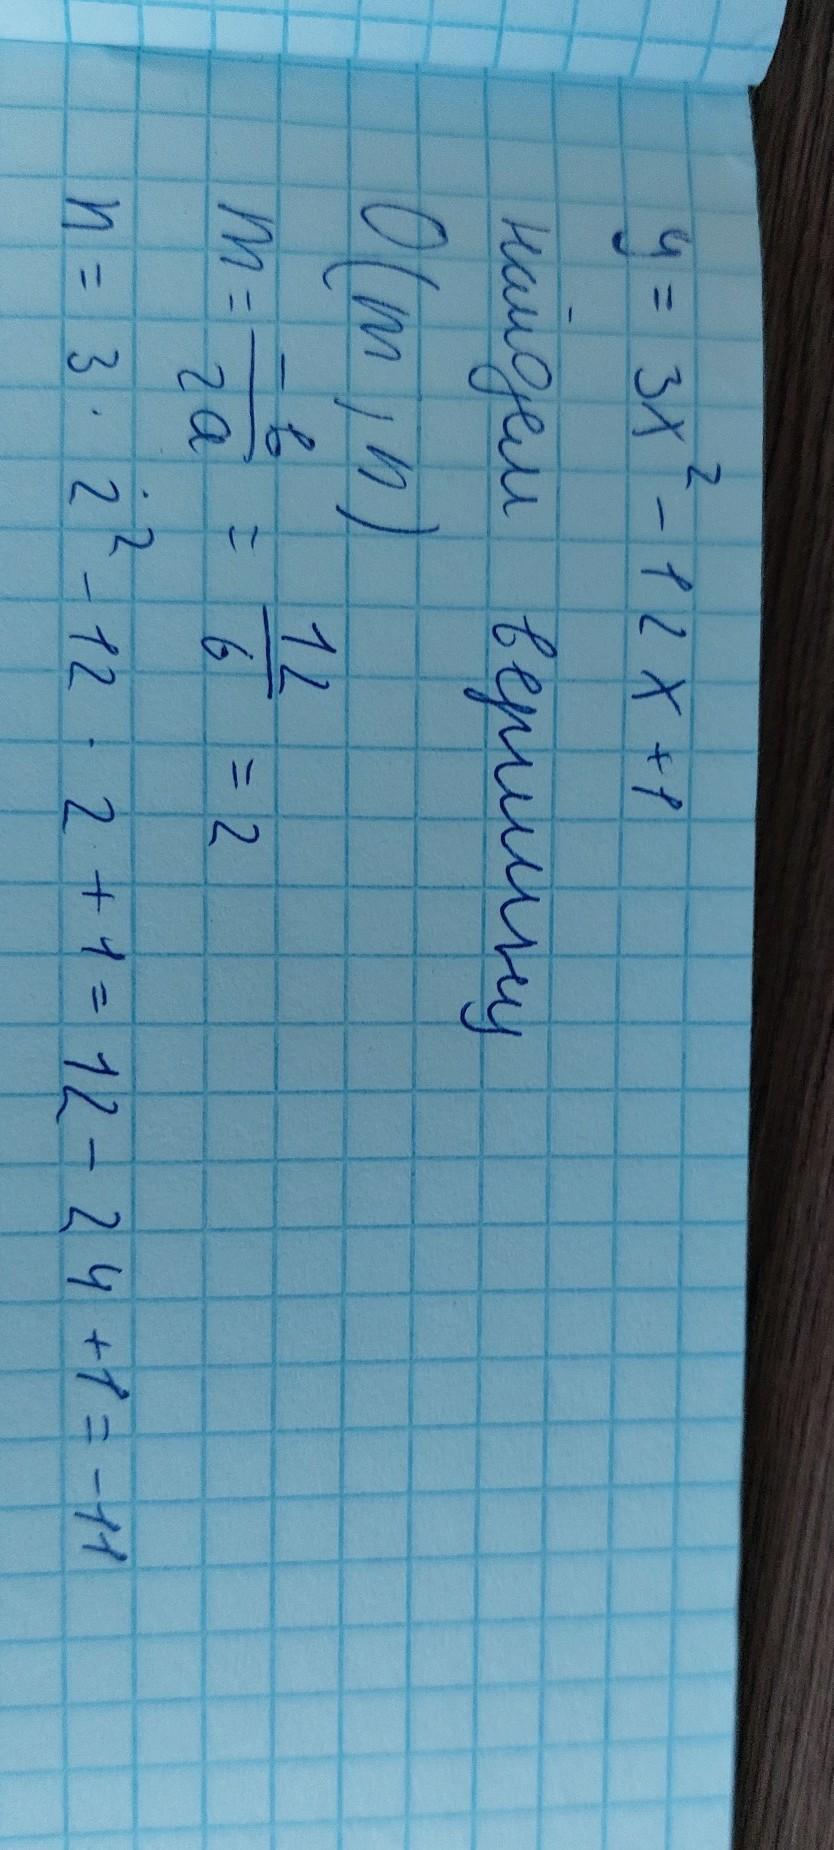 y = 3x² - 12x + 1
найдем вершину
O(m, n)
m = -в/2a = 12/6 = 2
n = 3 · 2² - 12 · 2 + 1 = 12 - 24 + 1 = -11